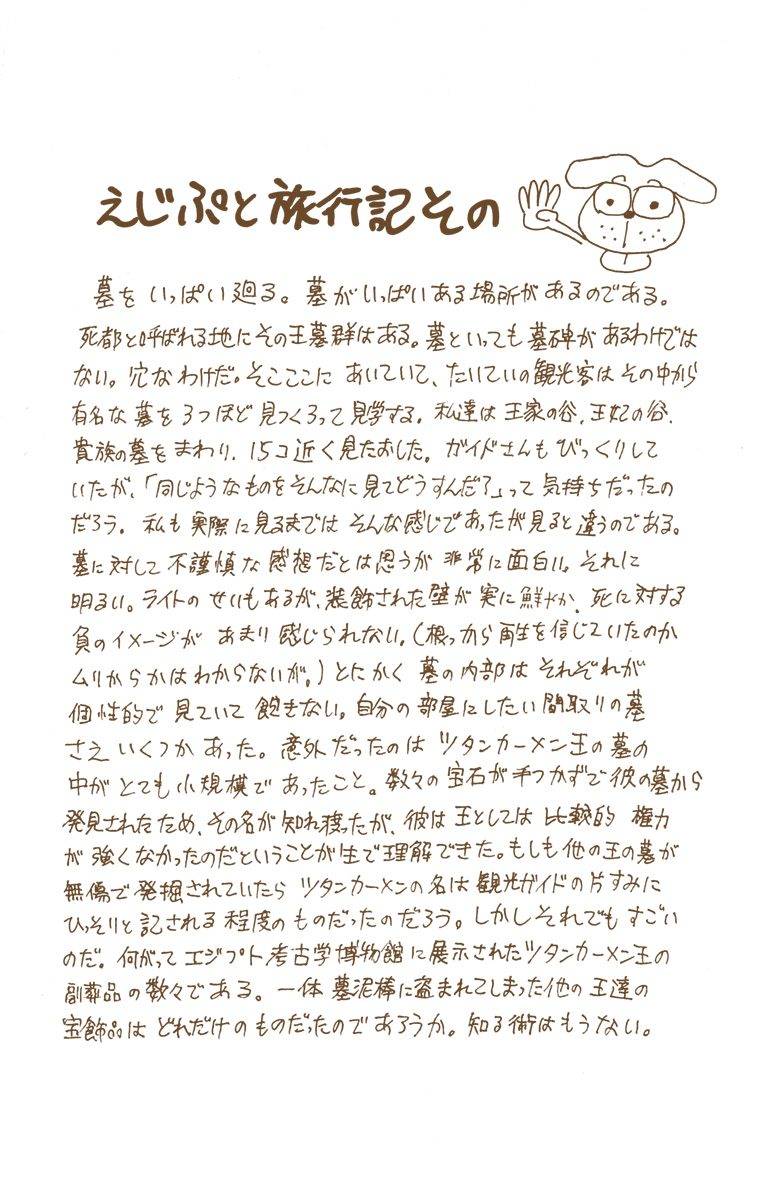 えじぷと旅行記その
墓をいっぱい廻る。墓がいっぱいある場所があるのである。
死都と呼ばれる地にその王墓群はある。墓といっても墓碑があるわけでは
ない。穴なわけだ。そこここにあいていて、たいていの観光客はその中から
有名な墓を3つほど見つくろって見学する。私達は王家の谷、王妃の谷、
貴族の墓をまわり、15コ近く見たおした。ガイドさんもびっくりして
いたが、「同じようなものをそんなに見てどうすんだ?」って気持ちだったの
だろう。私も実際に見るまではそんな感じであったが見ると違うのである。
墓に対して不謹慎な感想だとは思うが非常に面白い。それに
明るい。ライトのせいもあるが、装飾された壁が実に鮮やか。死に対する
負のイメージがあまり感じられない。(根っから再生を信じていたのか
ムリからかはわからないが。)とにかく墓の内部はそれぞれが
個性的で見ていて飽きない。自分の部屋にしたい間取りの墓
さえいくつかあった。意外だったのはツタンカーメン王の墓の
中がとても小規模であったこと。数々の宝石が手つかずで彼の墓から
発見されたため、その名が知れ渡ったが、彼は王としては比較的権力
が強くなかったのだということが生で理解できた。もしも他の王の墓が
無傷で発掘されていたらツタンカーメンの名は観光ガイドの片すみに
ひっそりと記される程度のものだったのだろう。しかしそれでもすごい
のだ。何がってエジプト考古学博物館に展示されたツタンカーメン王の
副葬品の数々である。一体墓泥棒に盗まれてしまった他の王達の
宝飾品はどれだけのものだったのであろうか。知る術はもうない。